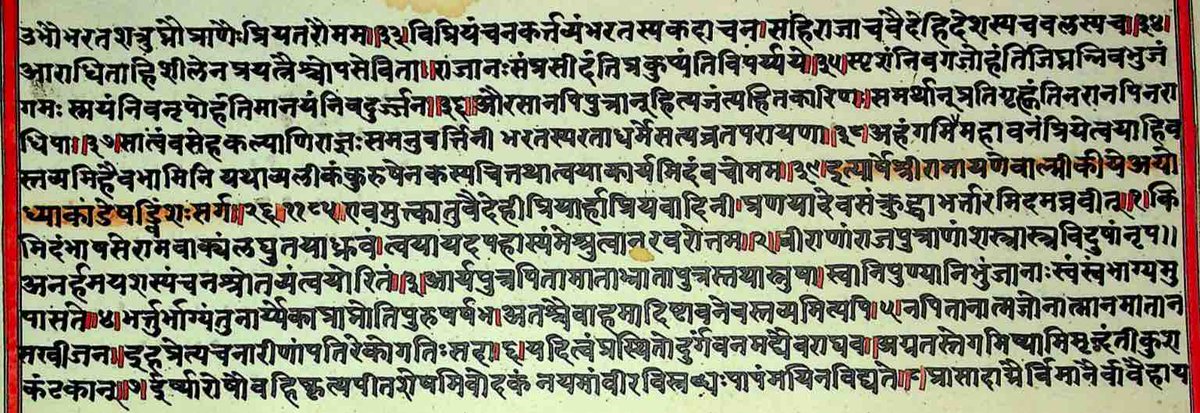 उभौभरतशत्रुघ्नौप्राणैःप्रियतरौमम।३३।विप्रियंचनकर्त्तव्यंभरतस्यकदाचन।सहिराजाचवैदेहिदेशस्यचबलस्यच।३४।
आराधिताहिशीलेनप्रयत्नैश्चोपसेविताः।राजानःसंप्रसीदंतिप्रकुप्यंतिविपर्य्यये।३५।स्पृशंनिवगजोहंतिजिघ्रन्निवभुजं
गमः।स्मयंनिवनृपोहंतिमानयंनिवदुर्ज्जनः।३६।औरसानपिपुत्रान्हित्यजंत्यहितकारिणः।समर्थान्प्रतिगृह्णंतिनरानपिनरा
धिपाः।३७।सात्वंवसेहकल्याणिराज्ञःसमनुवर्त्तिनी।भरतस्यरताधर्मेसत्यव्रतपरायणा।३८।अहंगमिष्येमहावनंप्रियेत्वयाहिव
स्तव्यमिहैवभामिनि।यथाव्यलीकंकुरुषेनकस्यचित्तथात्वयाकार्यमिदंवचोमम।३९।इत्यार्षेश्रीरामायणेवाल्मीकीयेअयो
ध्याकांडेषड्विंशःसर्गः।२६।११८५।एवमुक्त्कातुवैदेहीप्रियार्हाप्रियवादिनी।प्रणयादेवसंक्रुद्धाभर्त्तारमिदमब्रवीत्।१।कि
मिदंभाषसेरामवाक्यंलघुतयाध्रुवं।त्वयायदपहास्यंमेश्रुत्वानरवरोत्तम।२।वीराणांराजपुत्राणांशस्त्रास्त्रविदुषांनृप॥
अनर्हमयशस्यंचनश्रोतव्यंत्वयेरितं।३।आर्यपुत्रपितामाताभ्रातापुत्रस्तथास्नुषा।स्वानिपुण्यानिभुंजानाःस्वंस्वंभाग्यमु
पासते।४।भर्त्तुर्भाग्यंतुनार्य्येकाप्राप्नोतिपुरुषर्षभ।अतश्चैवाहमादिष्टावनेवस्तव्यमित्यपि।५।नपितानात्मजोनात्मानमातान
सखीजनः।इहप्रेत्यचनारीणांपतिरेकोगतिःसदा।६।यदित्वंप्रस्थितोदुर्गंवनमद्यैवराघव।अग्रतस्तेगमिष्यामिमृद्नंतीकुश
कंटकान्।७।ईर्ष्यारोषौबहिःकृत्यपीतशेषमिवोदकं।नयमांवीरविस्रब्धःपापंमयिनविद्यते।८।प्रासादाग्रैर्विमानैर्वावैहाय